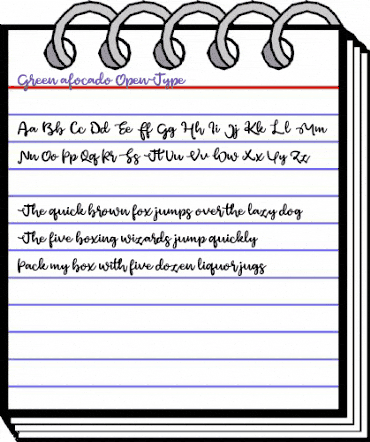 Green afocado OpenType
Aa Bb Cc Dd Ee Ff Gg Hh Ii Jj Kk Ll Mm
Nn Oo Pp Qq Rr Ss Tt Uu Vv Ww Xx Yy Zz
The quick brown fox jumps over the lazy dog
The five boxing wizards jump quickly
Pack my box with five dozen liquor jugs